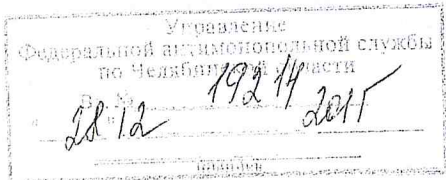 Управление
Федеральной антимонопольной службы
по Челябинской области
Вх. № 19214
"28" 12 2015